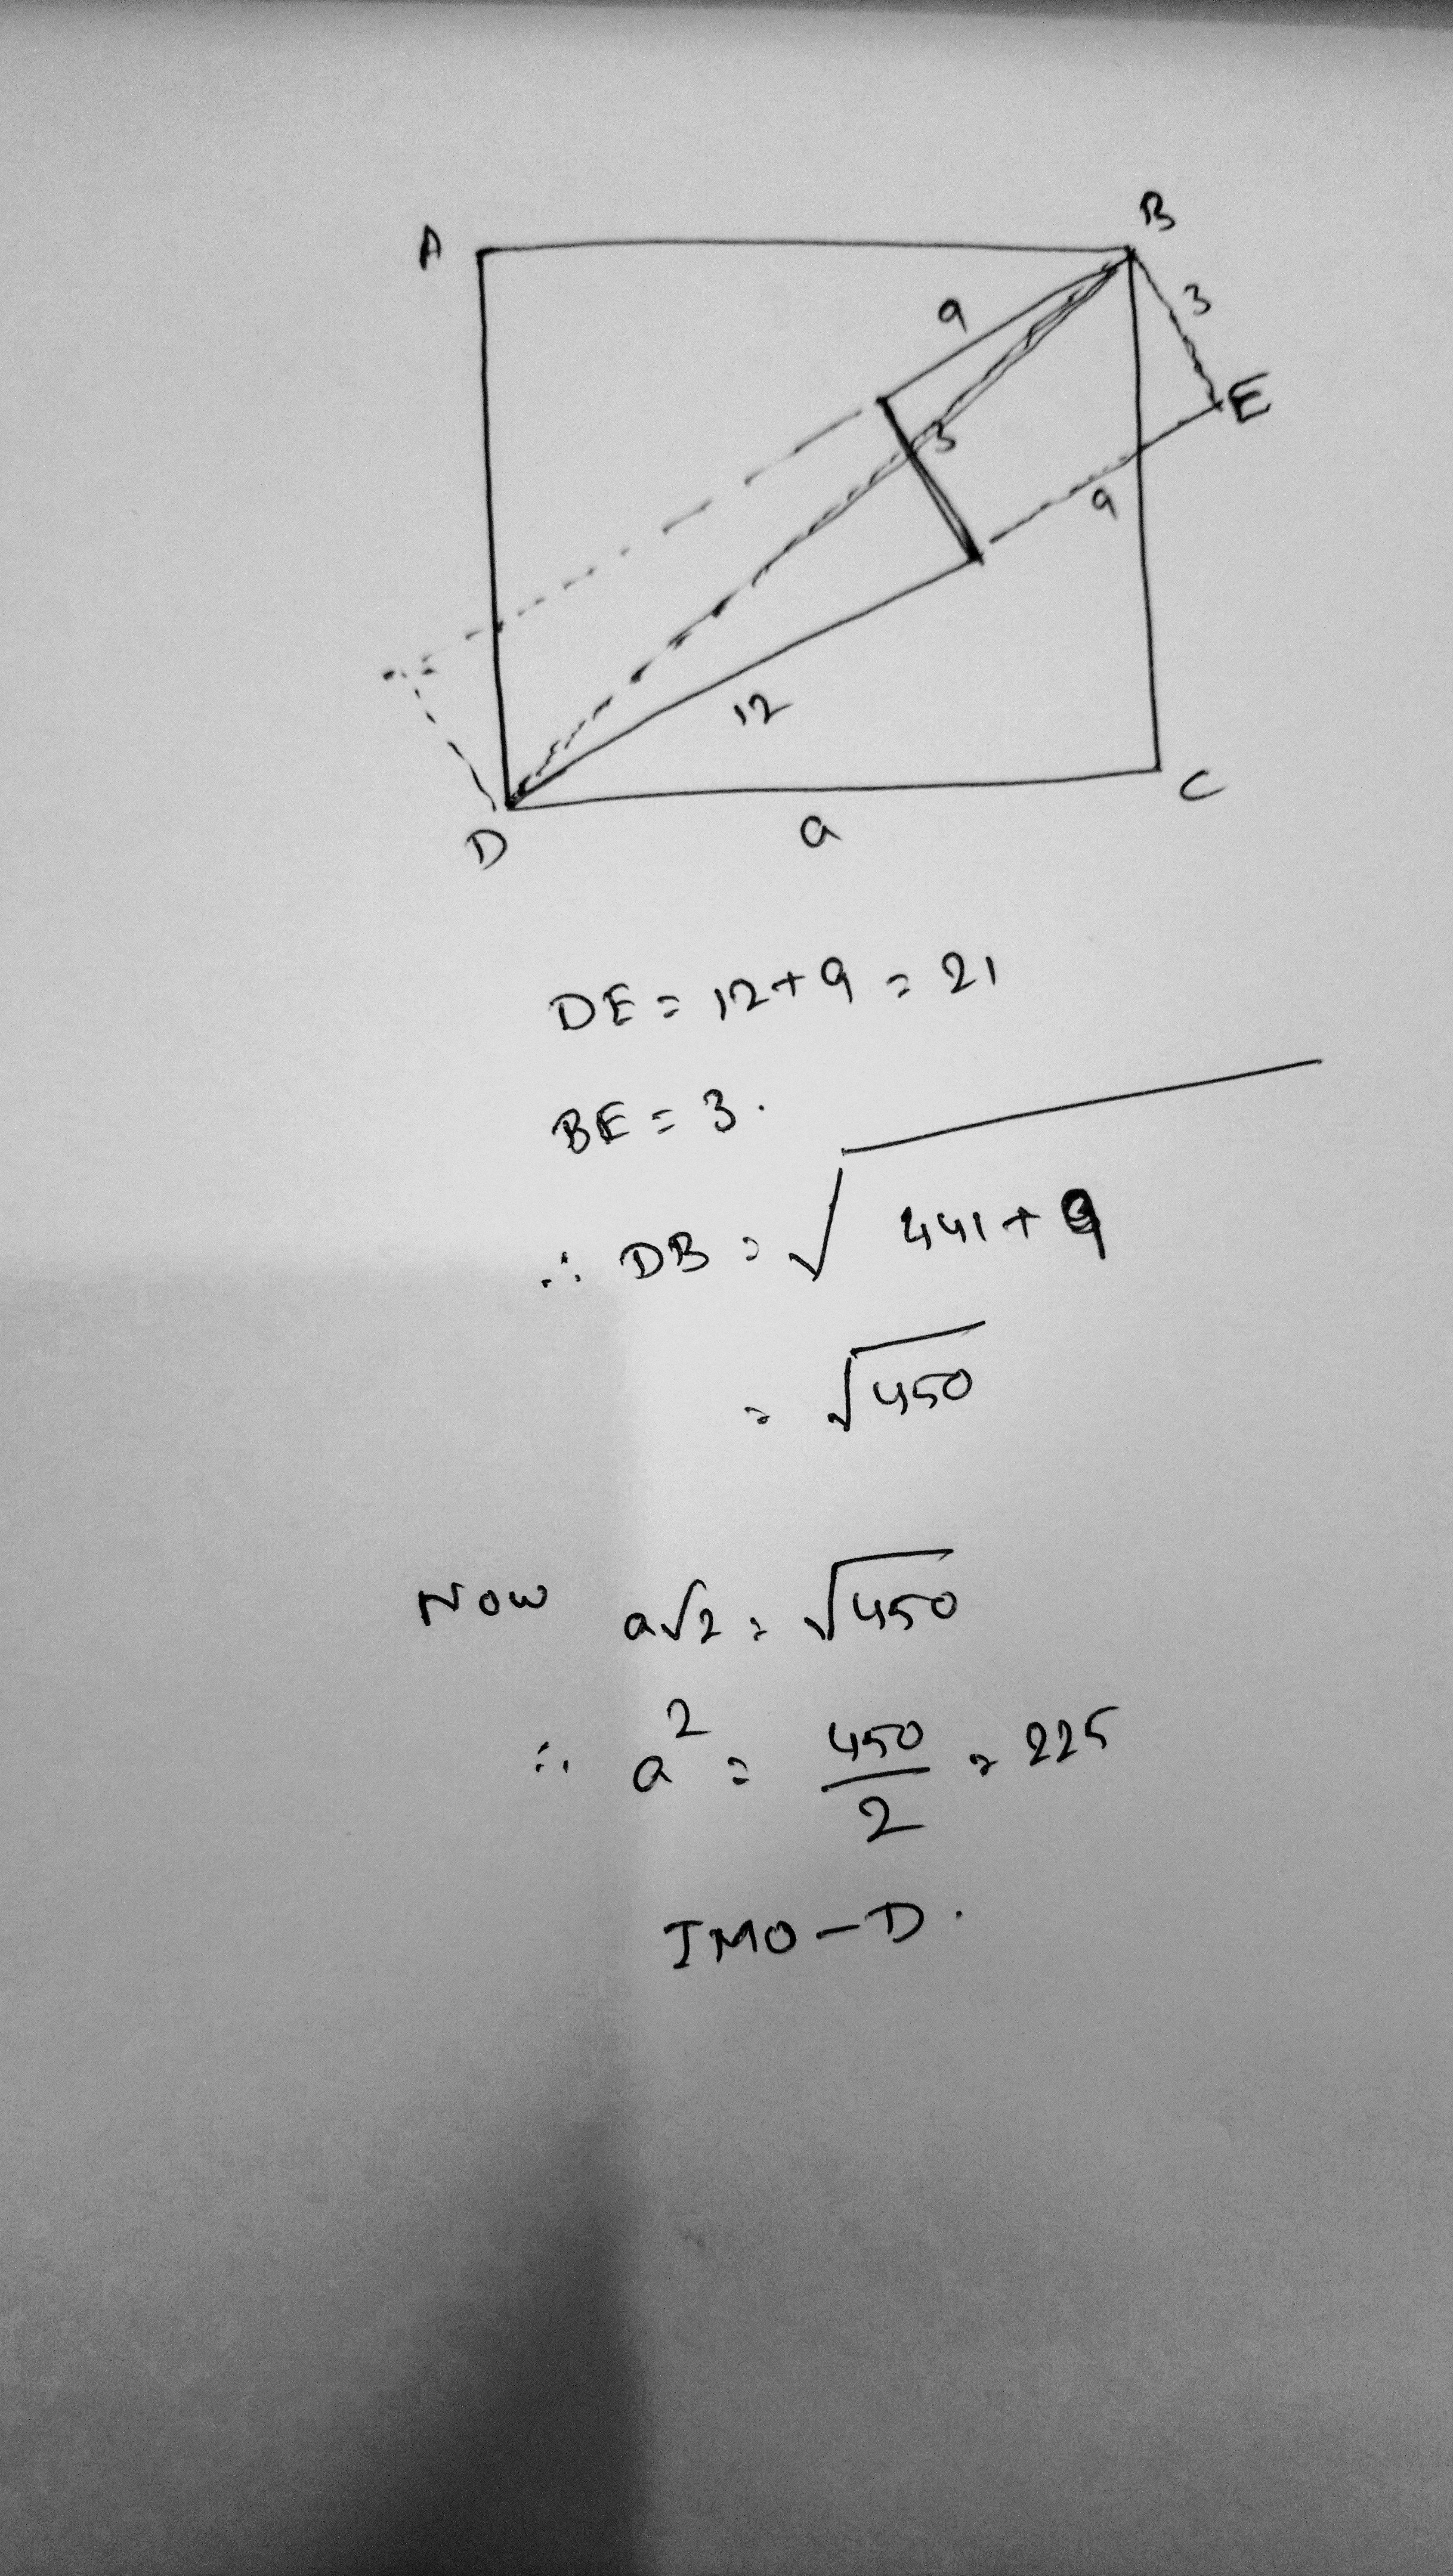 A
B
9
3
E
3
9
12
D
a
C
DE = 12+9 = 21
BE = 3.
∴ DB = √441+9
= √450
Now a√2 = √450
∴ a² = 450/2 = 225
IMO - D.